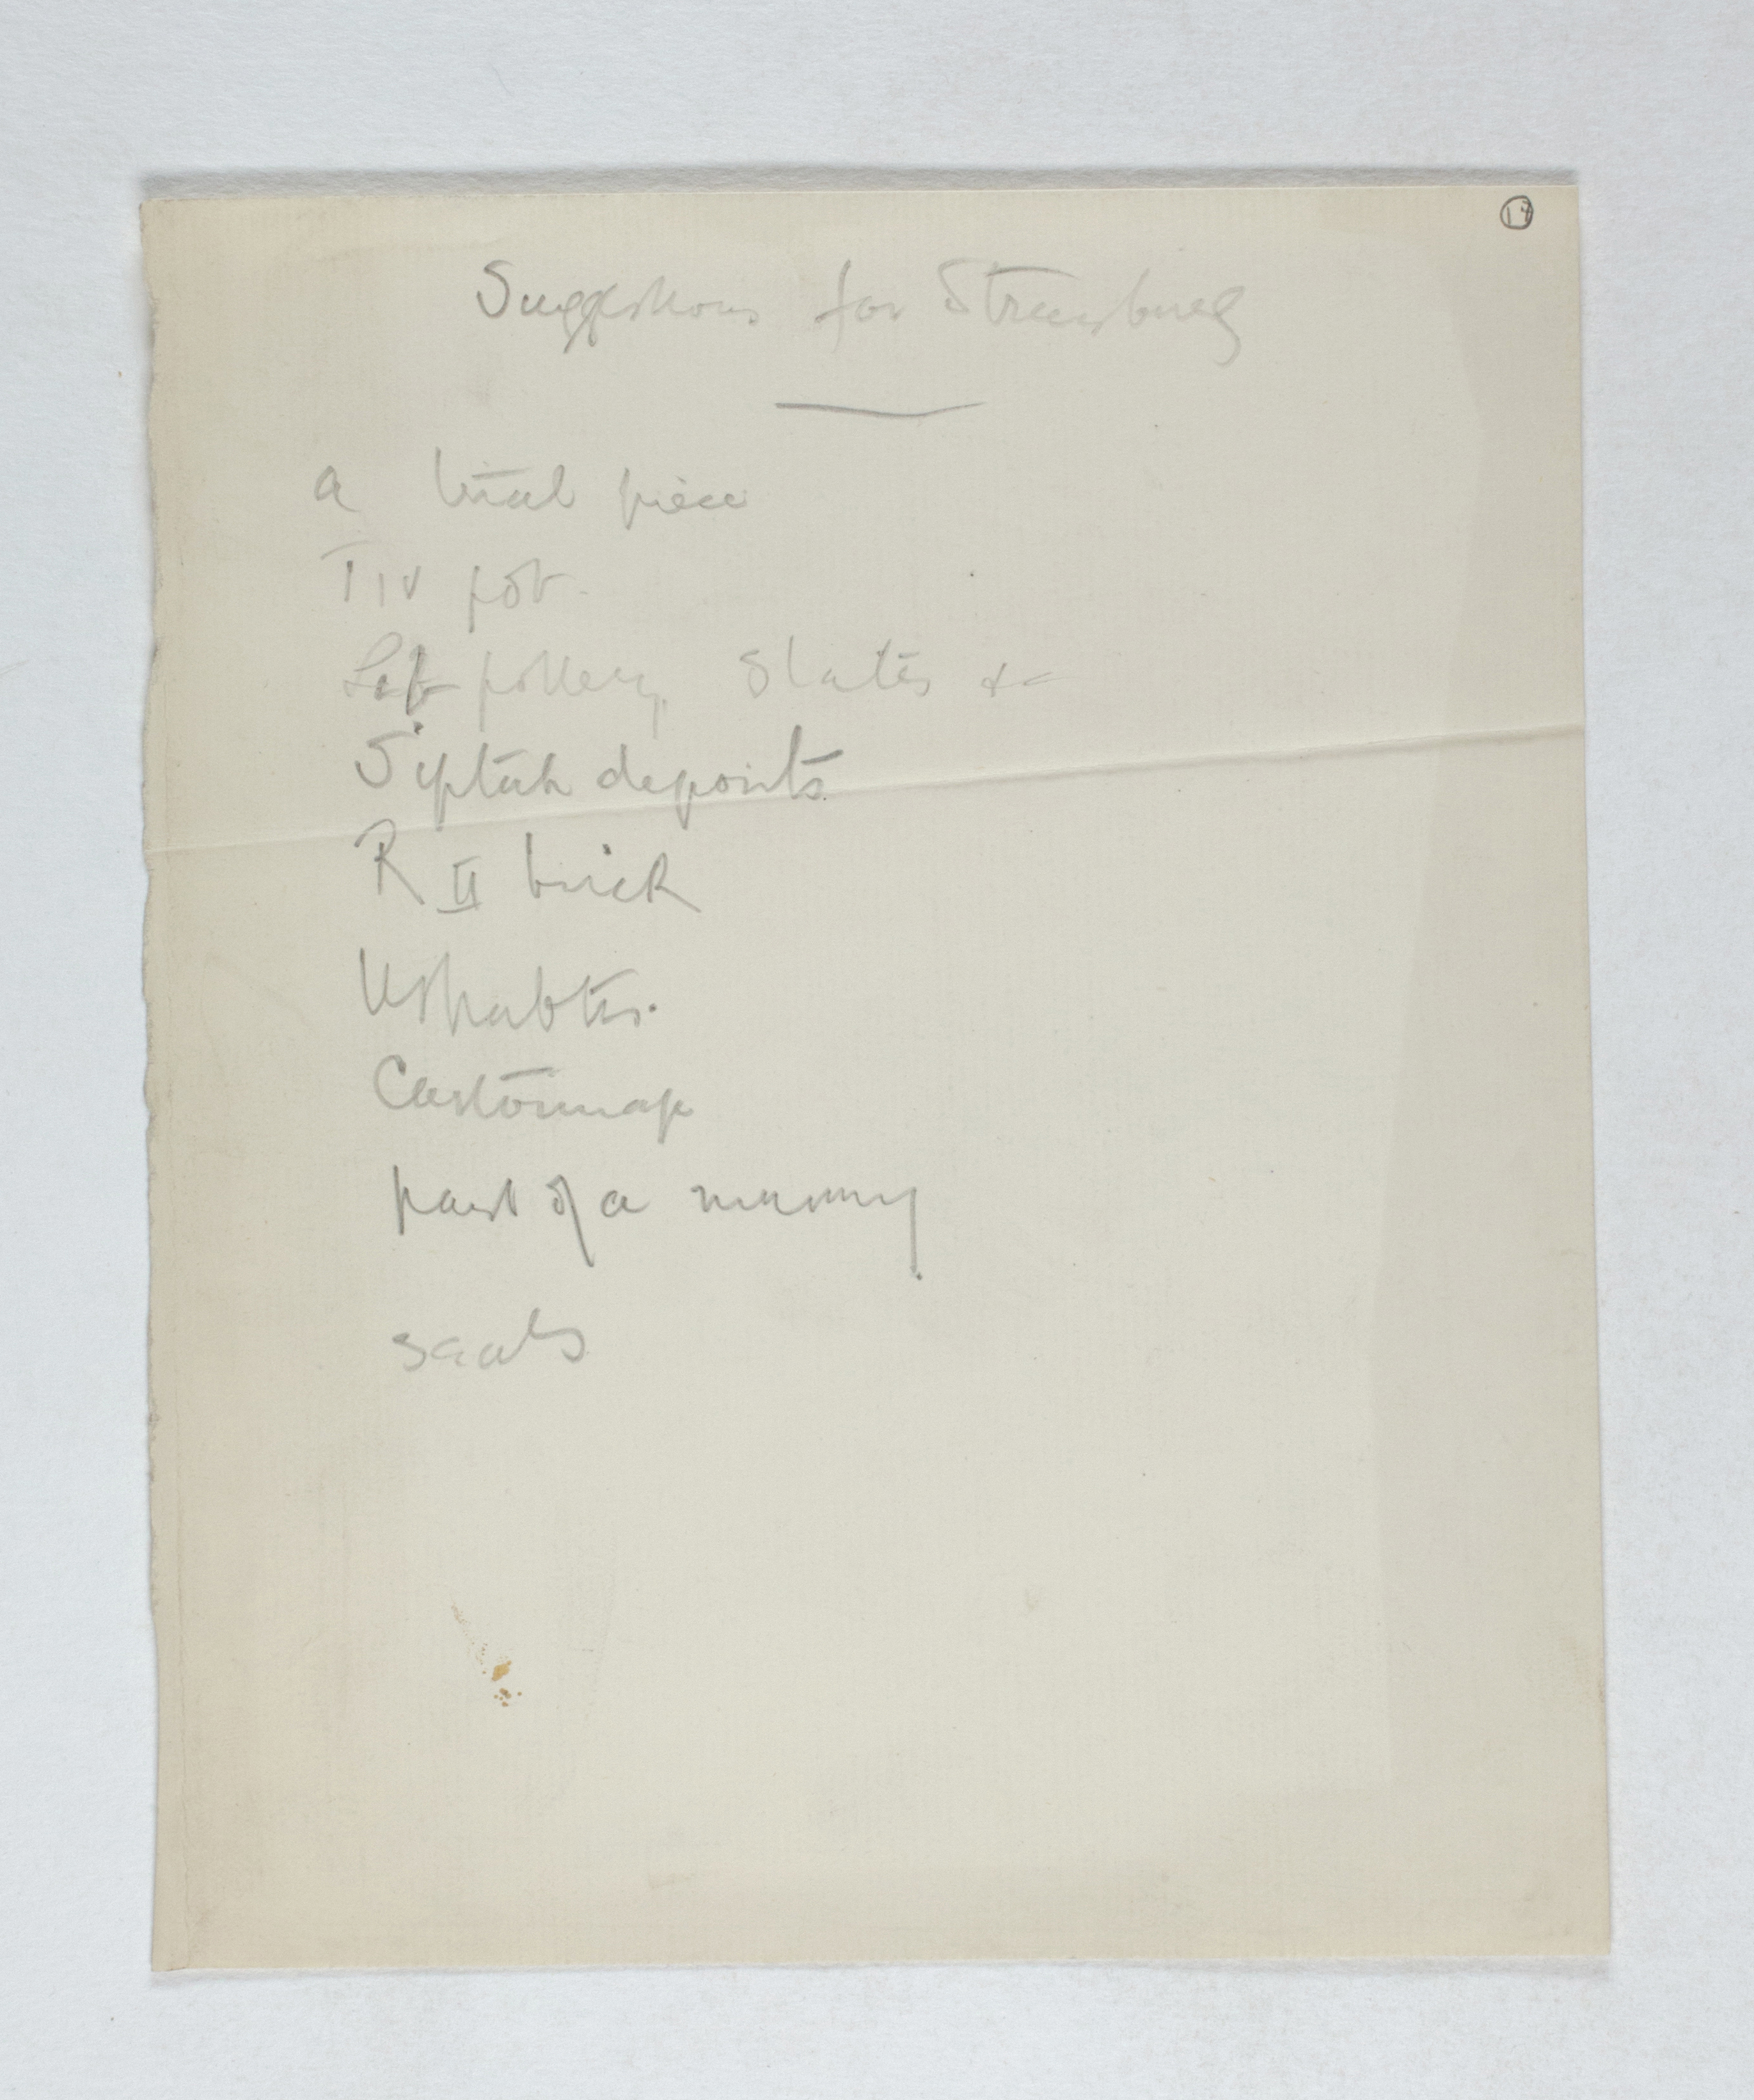 17
Suggestions for Strassburg
a trial piece
T IV pot.
Lib pottery, Slates &c
Siptah deposits
R II brick
Ushabtis.
Cartonnage
part of a mummy
seals